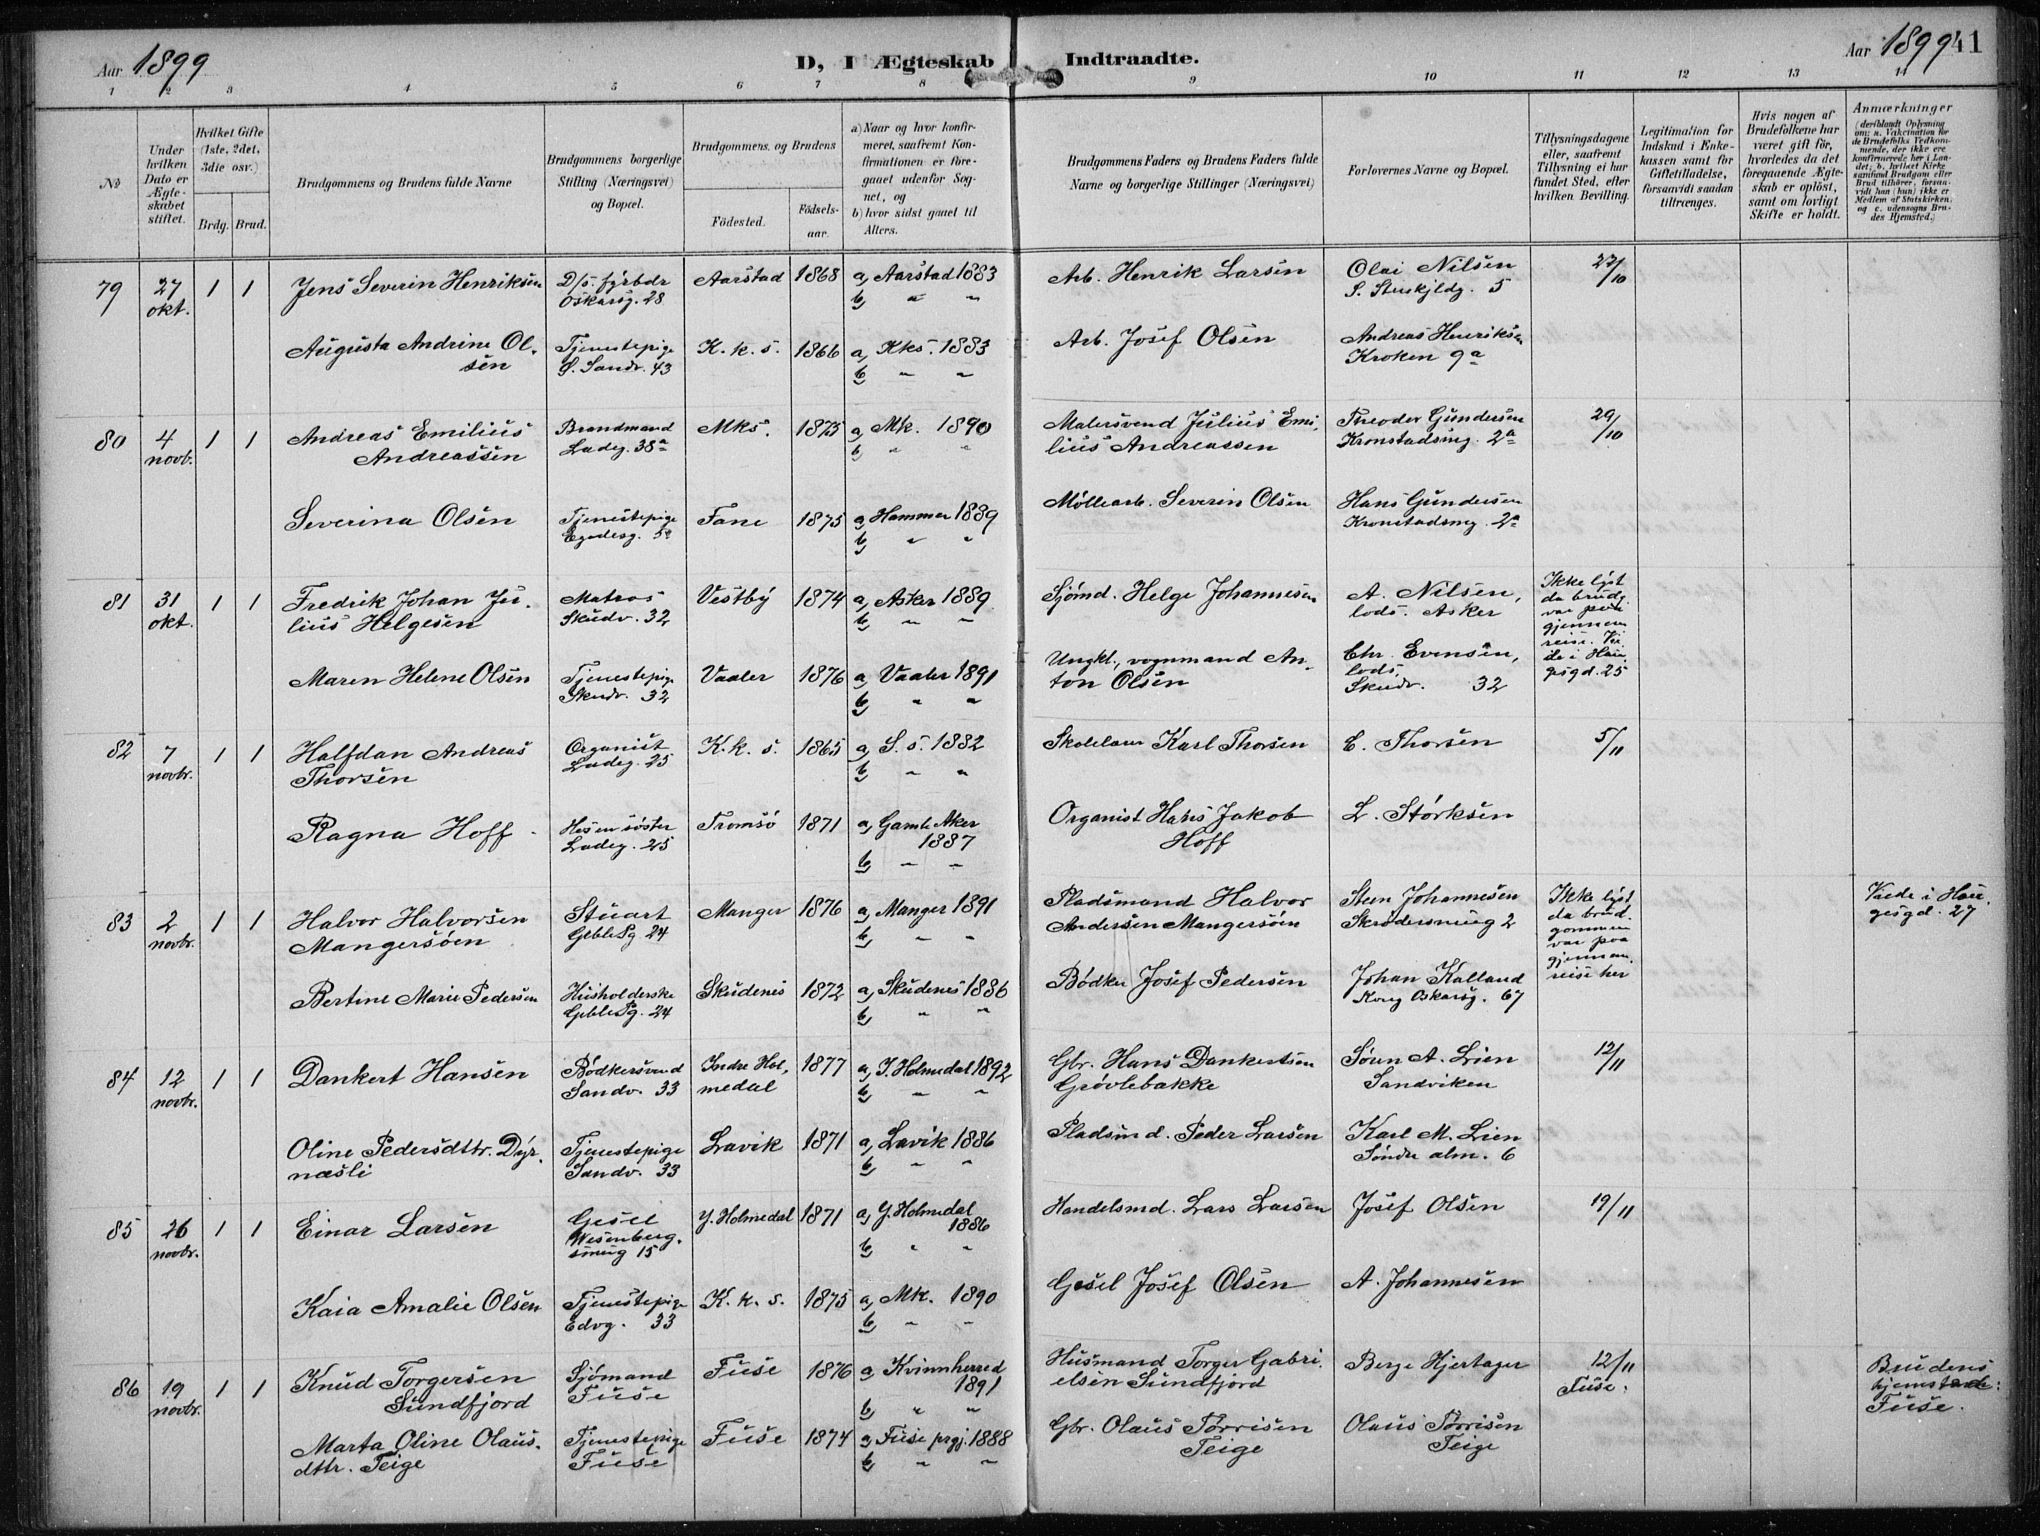 Aar 1899
D, I Ægteskab Indtraadte.
Aar 1899 41
1 2 3 4 5 6 7 8 9 10 11 12 13 14
№
Under hvilken Dato er Ægteskabet stiftet.
Hvilket Gifte (1ste, 2det, 3die osv.)
Brdg. Brud.
Brudgommens og Brudens fulde Navne
Brudgommens borgerlige Stilling (Næringsvei) og Bopæl.
Brudgommens og Brudens
Födested. Födselsaar.
a) Naar og hvor konfirmeret, saafremt Konfirmationen er foregaaet udenfor Sognet, og
b) hvor sidst gaaet til Alters.
Brudgommens Faders og Brudens Faders fulde Navne og borgerlige Stillinger (Næringsvei)
Forlovernes Navne og Bopæl.
Tillysningsdagene eller, saafremt Tillysning ei har fundet Sted, efter hvilken Bevilling.
Legitimation for Indskud i Enkekassen samt for Giftetilladelse, forsaavidt saadan tiltrænges.
Hvis nogen af Brudefolkene har været gift för, hvorledes da det foregaaende Ægteskab er oplöst, samt om lovligt Skifte er holdt.
Anmærkninger (deriblandt Oplysning om: a. Vakcination for de Brudefolks Vedkommende, der ikke ere konfirmerede her i Landet; b. hvilket Kirkesamfund Brudgom eller Brud tilhörer, forsaavidt han (hun) ikke er Medlem af Statskirken, og c. udensogns Brudes Hjemsted.)
79 27 okt. 1 1 Jens Severin Henriksen D/s. fyrbdr Oskarsg. 28 Aarstad 1868 a, Aarstad 1883 b, " " Arb. Henrik Larsen Olai Nilsen 5 27/10
Augusta Andrine Olsen Tjenestepige S. Sandv. 43 K. k. s. 1866 a, Kks. 1883 b, " " Arb. Josef Olsen Andreas Henriksen Kroken 9a
80 4 novb. 1 1 Andreas Emilius Andreassen Brandmand Ladeg. 38a Mks. 1875 a, Mk. 1890 b, " " Malersvend Julius Emilius Andreassen Theodor Gundersen Kronstadsmg. 2a 29/10
Severina Olsen Tjenestepige Egedesg. 5a Fane 1875 a, Hammer 1889 b, " " Møllearb. Severin Olsen Hans Gundersen Kronstadsmg. 2a
81 31 okt. 1 1 Fredrik Johan Julius Helgesen Matros Skudv. 32 Vestby 1874 a, Asker 1889 b, " " Sjømd. Helge Johannesen A. Nilsen, lods. Asker Ikke lyst da brudg. var paa gjennemreise. Viede i Haugesgd. 25
Maren Helene Olsen Tjenestepige Skudv. 32 Vaaler 1876 a, Vaaler 1891 b, " " Ungkl., vognmand Anton Olsen Chr. Evensen, lods, Skudv. 32
82 7 novbr. 1 1 Halfdan Andreas Thorsen Organist Ladeg. 25 K. k. s. 1865 a, S. s. 1882 b, " " Karl Thorsen C. Thorsen 5/11
Ragna Hoff Hos en søster Ladeg. 25 Tromsø 1871 a, Gamle Aker 1887 b, " " Organist Hans Jakob Hoff L. Størksen
83 2 novbr. 1 1 Halvor Halvorsen Mangersøen Stuart Geble Pg 24 Manger 1876 a, Manger 1891 b, " " Pladsmand Halvor Andersen Mangersøen Steen Johannesen Skrødersmug 2 Ikke lyst, da brudgommen var paa gjennemreise her Viede i Haugesgd. 27
Bertine Marie Pedersen Husholderske Geble Pg. 24 Skudenes 1872 a, Skudenes 1886 b, " " Bødker Josef Pedersen Johan Kalland Kong Oskarsg. 67
84 12 novbr. 1 1 Dankert Hansen Bødkersvend Sandv. 33 Indre Holmedal 1877 a, I. Holmedal 1892 b, " " Gbr. Hans Dankertsen Grøvlebakke Søren A. Lien Sandviken 12/11
Oline Pedersdttr. Dyrnæsli Tjenestepige Sandv. 33 Lavik 1871 a, Lavik 1886 b, " " Pladsmd. Peder Larsen Karl M. Lien Søndre alm. 6
85 26 novbr. 1 1 Einar Larsen Gesel Wesenbergsmug 15 Y. Holmedal 1871 a, Y. Holmedal 1886 b, " " Handelsmd. Lars Larsen Josef Olsen 19/11
Kaia Amalie Olsen Tjenestepige Edvg. 33 K. k. s. 1875 a, Mk. 1890 b, " " Gesel Josef Olsen A. Johannesen
86 19 novbr. 1 1 Knud Torgersen Sundfjord Sjømand Fuse Fuse 1876 a, Kvinnherred 1891 b, " " Husmand Torger Gabrielsen Sundfjord Berge Hjertager 12/11 Fuse. Brudens hjemsted: Fuse.
Marta Oline Olausdttr. Teige Tjenestepige Fuse Fuse 1874 a, Fuse prgj. 1888 b, " " Gbr. Olaus Torrisen Teige Olaus Torrisen Teige